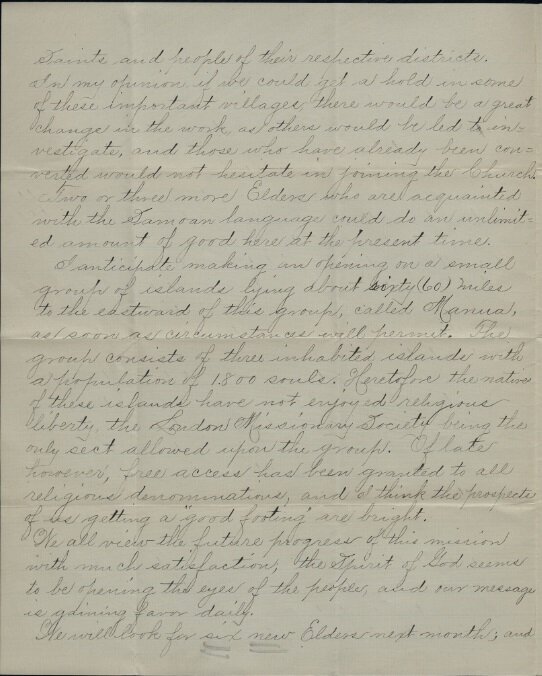 Saints and people of their respective districts.
In my opinion if we could get a hold in some
of these important villages, there would be a great
change in the work, as others would be led to in=
vestigate, and those who have already been con=
verted would not hesitate in joining the Church.
Two or three more Elders who are acquainted
with the Samoan language could do an unlimit=
ed amount of good here at the present time.
I anticipate making an opening on a small
group of islands lying about sixty (60) miles
to the eastward of this group, called Manua,
as soon as circumstances will permit. The
group consists of three inhabited islands with
a population of 1.800 souls. Heretofore the natives
of these islands have not enjoyed religious
liberty, the London Missionary Society being the
only sect allowed upon the group. Of late
however, free access has been granted to all
religious denominations, and I think the prospects
of us getting a "good footing" are bright.
We all view the future progress of this mission
with much satisfaction, the Spirit of God seems
to be opening the eyes of the people, and our message
is gaining favor daily.
We will look for six new Elders next month; and